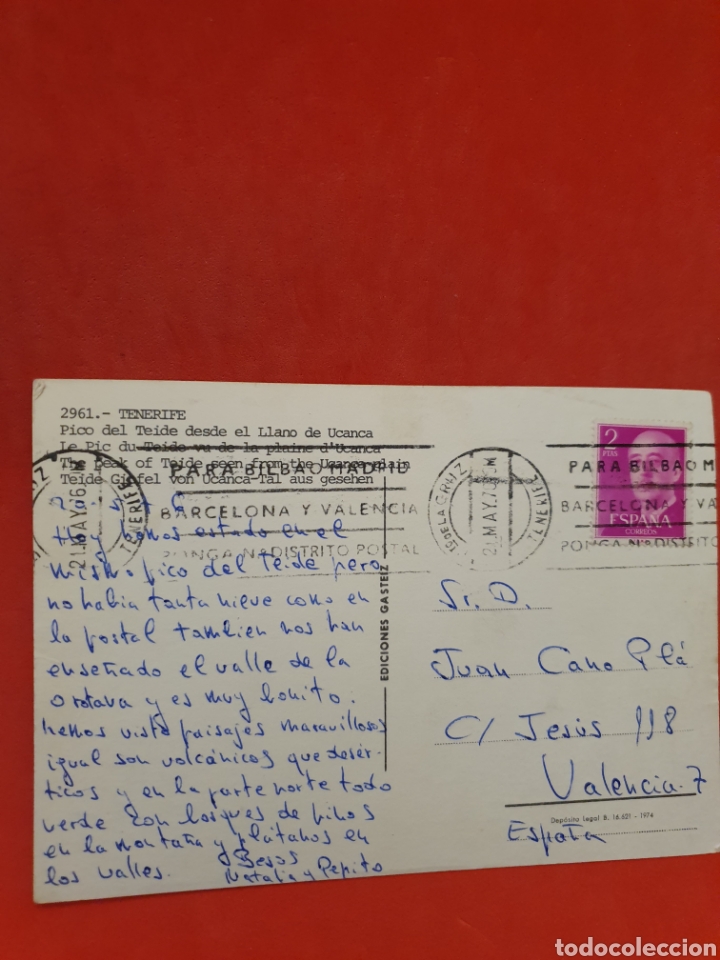 2961.- TENERIFE
Pico del Teide desde el Llano de Ucanca
Le Pic du Teide vu de la plaine d'Ucanca
The peak of Teide seen from the Ucanca plain
Teide Gipfel von Ucanca-Tal aus gesehen
Hoy hemos estado en el
mismo pico del Teide pero
no habia tanta nieve como en
la postal tambien nos han
enseñado el valle de la
Orotava y es muy bonito.
hemos visto paisajes maravillosos
igual son volcánicos que desér-
ticos y en la parte norte todo
verde con bosques de pinos
en la montaña y platanos en
los valles. Besos
Natalia y Pepito
EDICIONES GASTEIZ
21 MAY
TENERIFE
PARA BILBAO MADRID
BARCELONA Y VALENCIA
PONGA Nº DISTRITO POSTAL
DE LA CRUZ
21 MAY. 7
TENERIFE
PARA BILBAO M
BARCELONA Y VALEN
PONGA Nº DISTRITO
2
PTAS
ESPAÑA
CORREOS
Sr. D.
Juan Cano Plá
C/ Jesús 118
Valencia-7
Depósito Legal B. 16.621 - 1974
España
todocoleccion